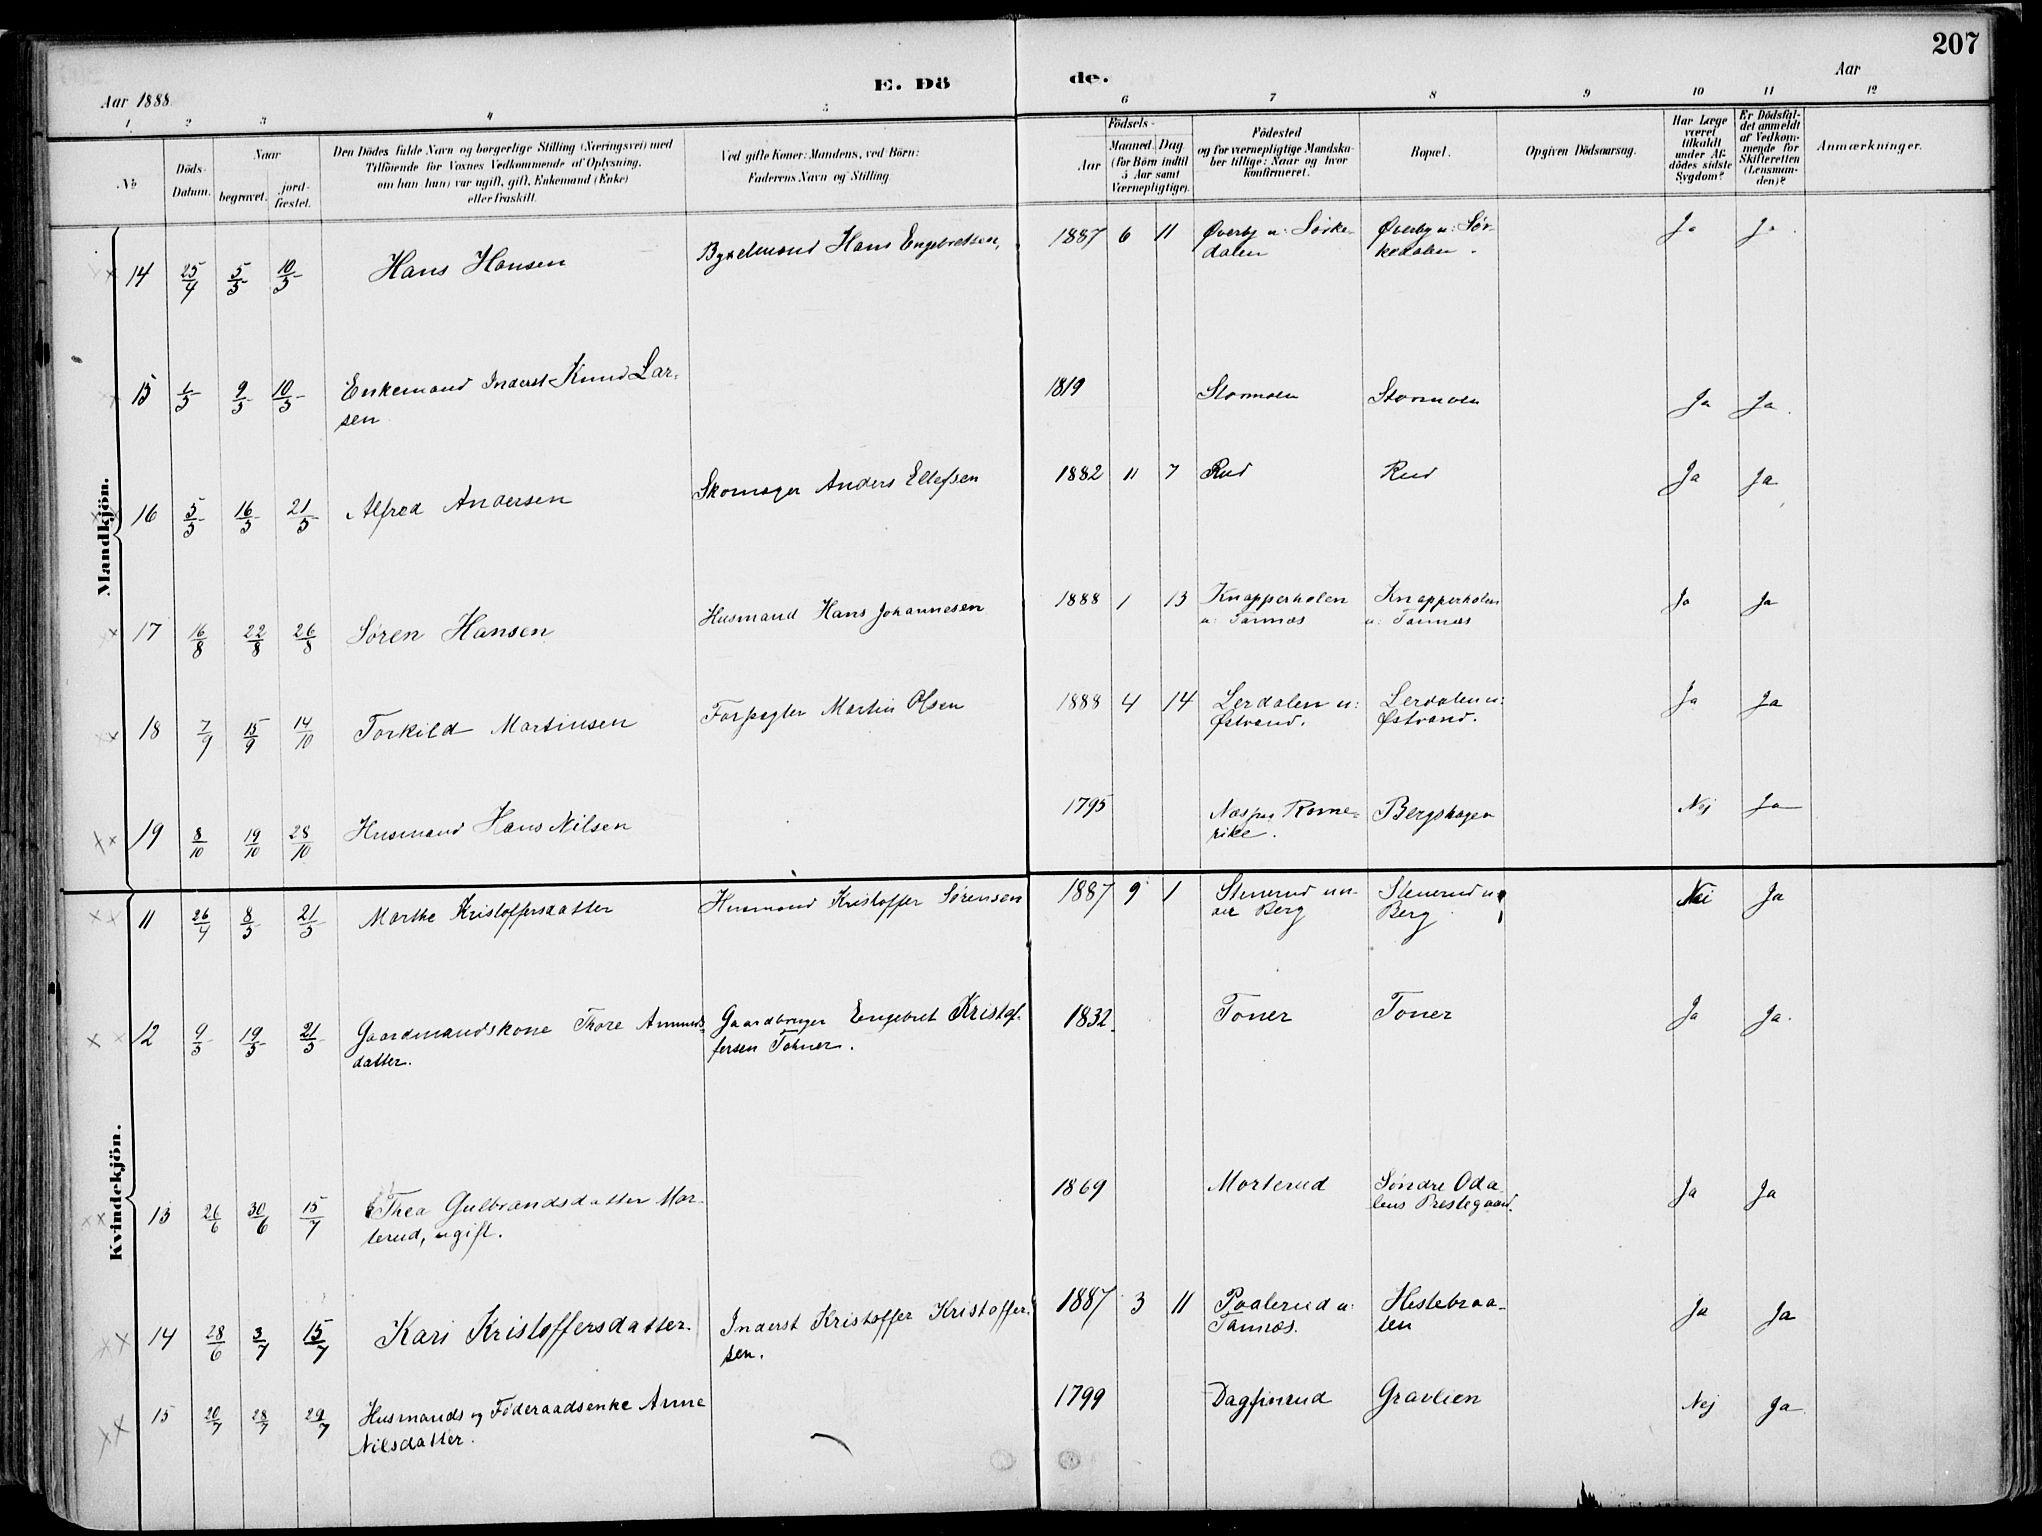 207
Aar 1888.
E. Dö
de.
Aar
1 2 3 4 5 6 7 8 9 10 11 12
No
Döds-
Datum.
Naar
begravet.
jord-
fæstet.
Den Dödes fulde Navn og borgerlige Stilling (Næringsvei) med
Tilföiende for Voxnes Vedkommende af Oplysning,
om han (hun) var ugift, gift, Enkemand (Enke)
eller fraskilt.
Ved gifte Koner: Mandens, ved Börn:
Faderens Navn og Stilling.
Födsels-
Aar
Maaned. Dag
(for Börn indtil
5 Aar samt
Værnepligtige).
Födested
og for værnepligtige Mandska-
ber tillige: Naar og hvor
konfirmeret.
Bopæl.
Opgiven Dödsaarsag.
Har Læge
været
tilkaldt
under Af-
dödes sidste
Sygdom?
Er Dödsfal-
det anmeldt
af Vedkom-
mende for
Skifteretten
(Lensman-
den)?
Anmærkninger.
Mandkjön.
14 25/4 5/5 10/5 Hans Hansen Bygselmand Hans Engebretsen, 1887 6 11 Øverby u: Sørke- Øverby u: Sør- Ja Ja
dalen kedalen.
15 1/5 9/5 10/5 Enkemand Inderst Knud Lar- 1819 Stormoen Stormoen Ja Ja.
sen
16 5/5 16/5 21/5 Alfred Andersen Skomager Anders Ellefsen 1882 11 7 Rud Rud Ja Ja
17 16/8 22/8 26/8 Søren Hansen Husmand Hans Johannesen 1888 1 13 Knapperholen Knapperholen Ja Ja
u: Tannæs u: Tannæs
18 7/9 15/9 14/10 Torkild Martinsen Forpagter Martin Olsen 1888 4 14 Lerdalen u: Lerdalen u: Ja Ja
Østrand. Østrand.
19 8/10 19/10 28/10 Husmand Hans Nilsen 1795 Næs paa Rome- Bergshagen Nej Ja
rike.
Kvindekjön.
11 26/4 8/5 21/5 Marthe Kristoffersdatter Husmand Kristoffer Sørensen 1887 9 1 Stenerud un- Stenerud u: Nei Ja
der Berg Berg
12 9/5 19/5 21/5 Gaardmandskone Thore Amunds- Gaardbruger Engebret Kristof- 1832. Toner Toner Ja Ja.
datter. fersen Tohner.
13 26/6 30/6 15/7 Thea Gulbrandsdatter Mor- 1869 Morterud Søndre Oda- Ja Ja
terud, ugift. lens Prestegaard.
14 28/6 3/7 15/7 Kari Kristoffersdatter. Inderst Kristoffer Kristoffer- 1887 3 11 Paalerud u: Hestebraa- Ja Ja
sen. Tannæs. ten
15 20/7 28/7 29/7 Husmands og Føderaadsenke Anne 1799 Dagfinrud Gravlien Nej Ja
Nilsdatter.